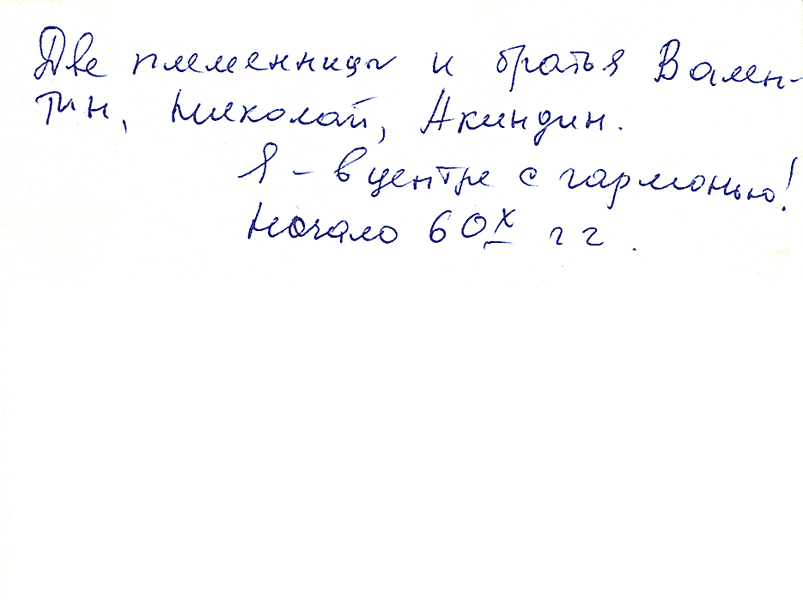 Две племенницы и братья Вален-
тин, Николай, Акиндин.
Я – в центре с гармонью!
Начало 60х гг.